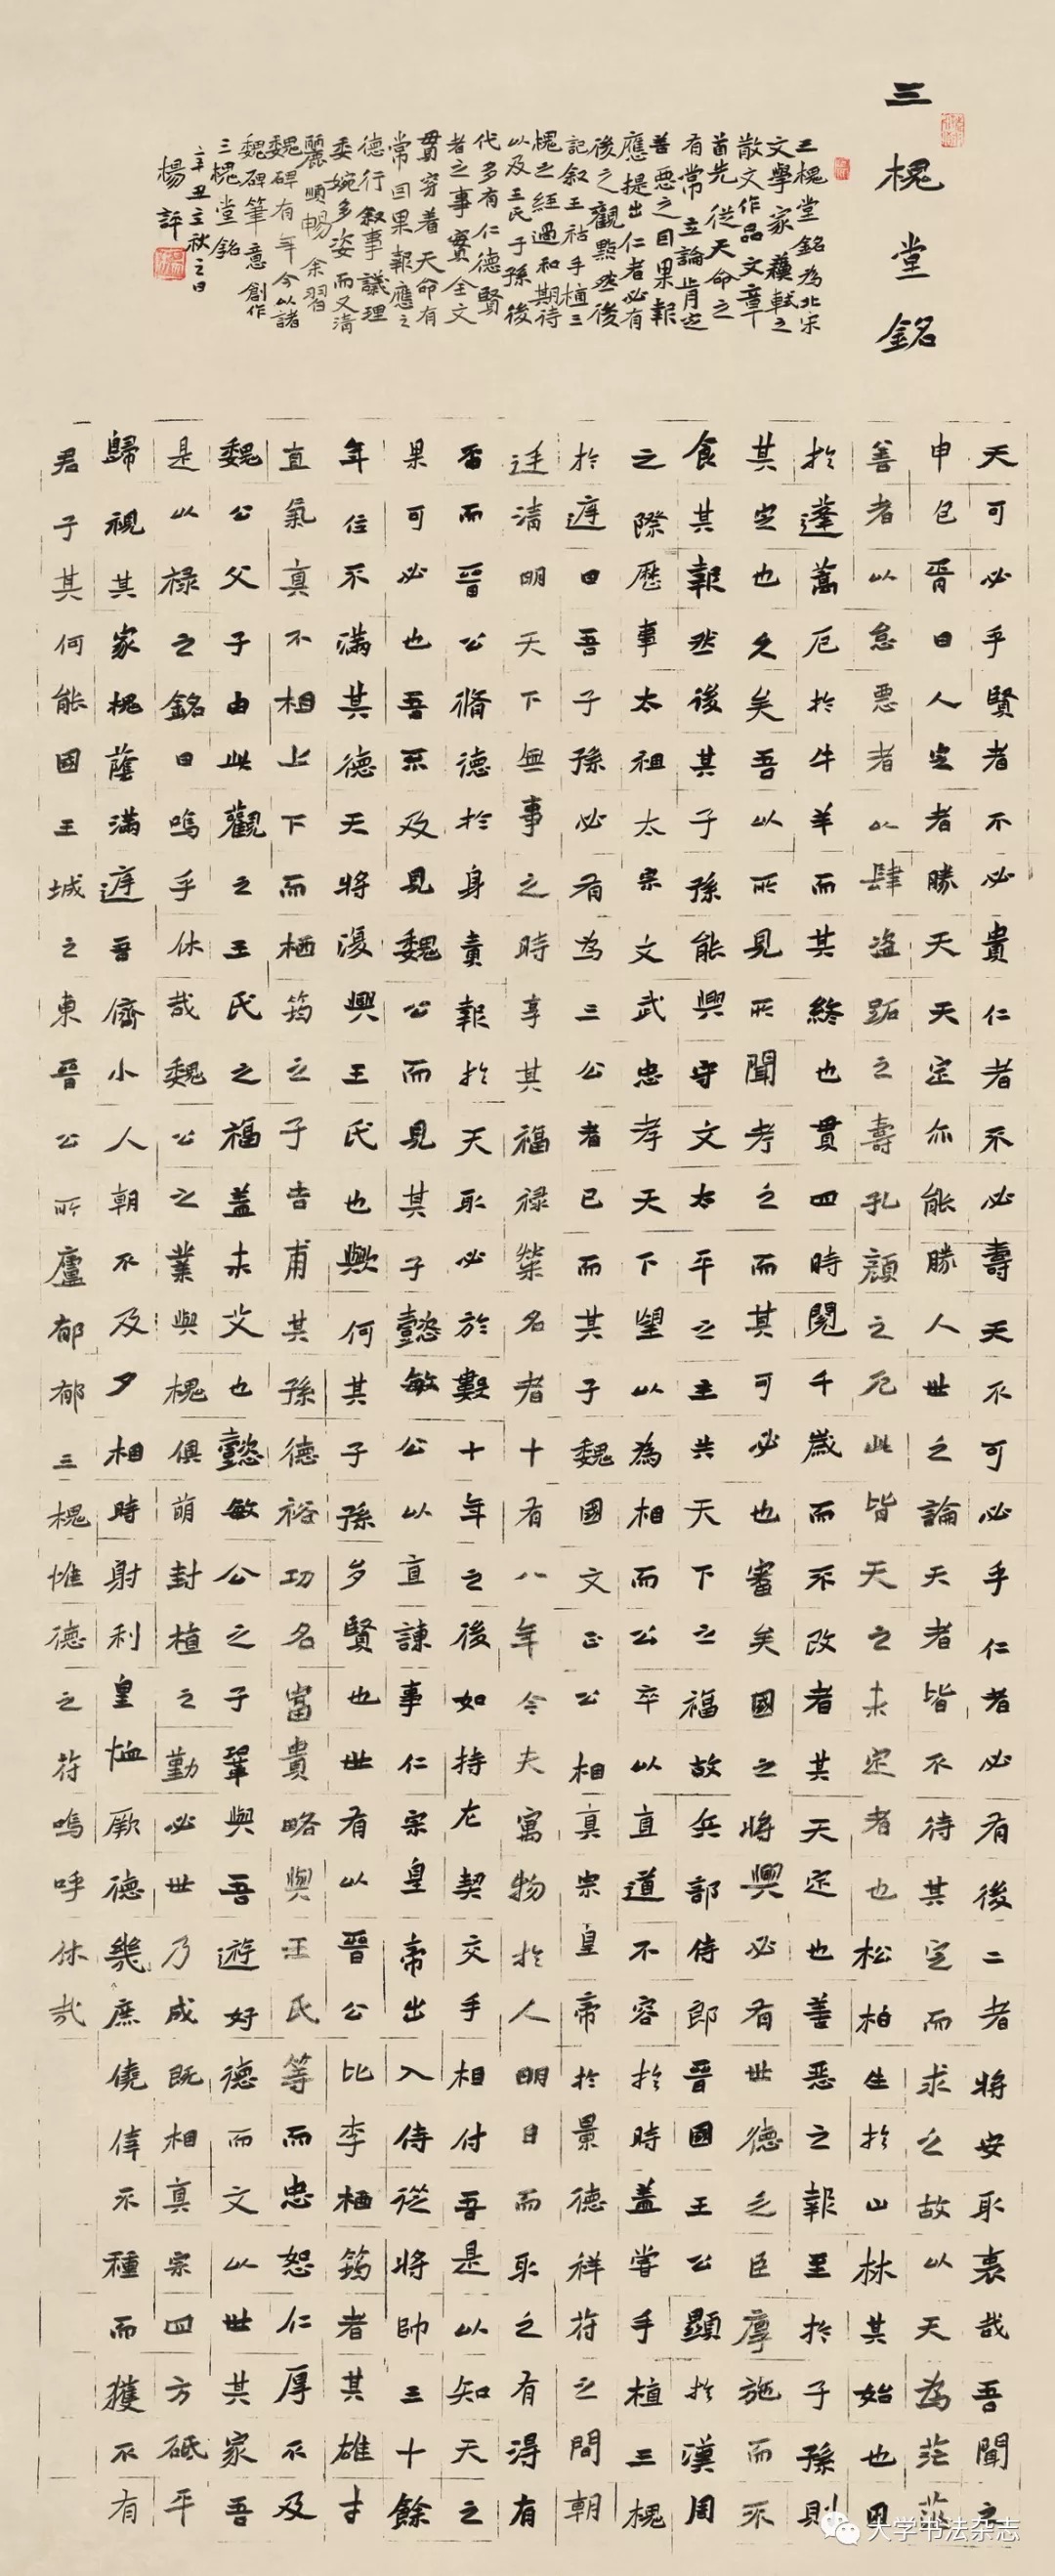 三槐堂銘
三槐堂銘為北宋
文學家蘇軾之
散文作品文章
首先從天命之
有常立論肯定
善惡之因果報
應提出仁者必有
後之觀點然後
記叙王祜手植三
槐之經過和期待
以及王氏子孫後
代多有仁德賢
者之事實全文
貫穿着天命有
常因果報應之
德行叙事議理
委婉多姿而又清
麗順暢余習
魏碑有年今以諸
魏碑筆意創作
三槐堂銘
辛丑立秋之日
楊評
天可必乎賢者不必貴仁者不必壽天不可必乎仁者必有後二者將安取衷哉吾聞之
申包胥曰人定者勝天天定亦能勝人世之論天者皆不待其定而求之故以天為茫茫
善者以怠惡者以肆盜跖之壽孔顏之厄此皆天之未定者也松柏生於山林其始也困
於蓬蒿厄於牛羊而其終也貫四時閱千歲而不改者其天定也善惡之報至於子孫則
其定也久矣吾以所見所聞考之而其可必也審矣國之將興必有世德之臣厚施而不
食其報然後其子孫能興守文太平之主共天下之福故兵部侍郎晉國王公顯於漢周
之際歷事太祖太宗文武忠孝天下望以為相而公卒以直道不容於時蓋嘗手植三槐
於庭曰吾子孫必有為三公者已而其子魏國文正公相真宗皇帝於景德祥符之間朝
廷清明天下無事之時享其福祿榮名者十有八年今夫寓物於人明日而取之有得有
否而晉公脩德於身責報於天取必於數十年之後如持左契交手相付吾是以知天之
果可必也吾不及見魏公而見其子懿敏公以直諫事仁宗皇帝出入侍從將帥三十餘
年位不滿其德天將復興王氏也歟何其子孫多賢也世有以晉公比李栖筠者其雄才
直氣真不相上下而栖筠之子吉甫其孫德裕功名富貴略與王氏等而忠恕仁厚不及
魏公父子由此觀之王氏之福蓋未艾也懿敏公之子鞏與吾遊好德而文以世其家吾
是以祿之銘曰嗚乎休哉魏公之業與槐俱萌封植之勤必世乃成既相真宗四方砥平
歸視其家槐蔭滿庭吾儕小人朝不及夕相時射利皇恤厥德幾庶僥倖不種而獲不有
君子其何能國王城之東晉公所廬郁郁三槐惟德之符嗚呼休哉
大学书法杂志